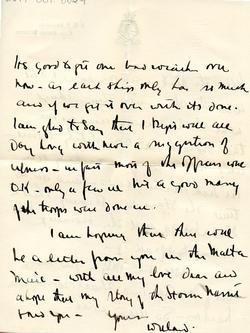 Its good to get one bad week over
now - as each ship only has so much
and if we get it over with its done.
I am glad to say that I kept well all
Day long with never a suggestion of
illness - in fact most of the Officers were
O.K - only a few ill but a good many
of the troops were done in.
I am hoping that there will
be a letter from you in the Malta
Mail - with all my love dear and
a hope that my story of the storm
you -
Yours